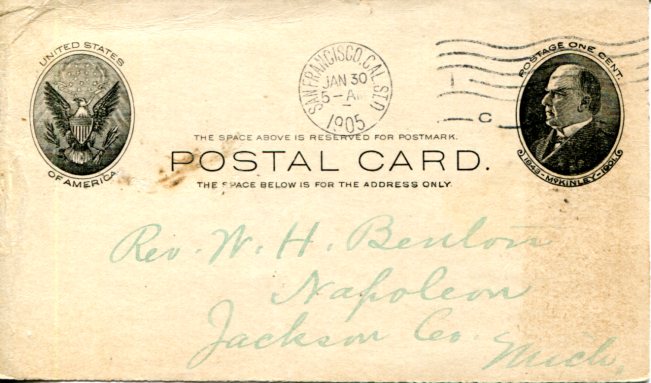 UNITED STATES
OF AMERICA
SAN FRANCISCO, CAL. STA.
JAN 30
5-AM
1905
C
POSTAGE ONE CENT.
1843-McKINLEY-1901
THE SPACE ABOVE IS RESERVED FOR POSTMARK.
POSTAL CARD.
THE SPACE BELOW IS FOR THE ADDRESS ONLY.
Rev. W. H. Benton
Napoleon
Jackson Co.
Mich.